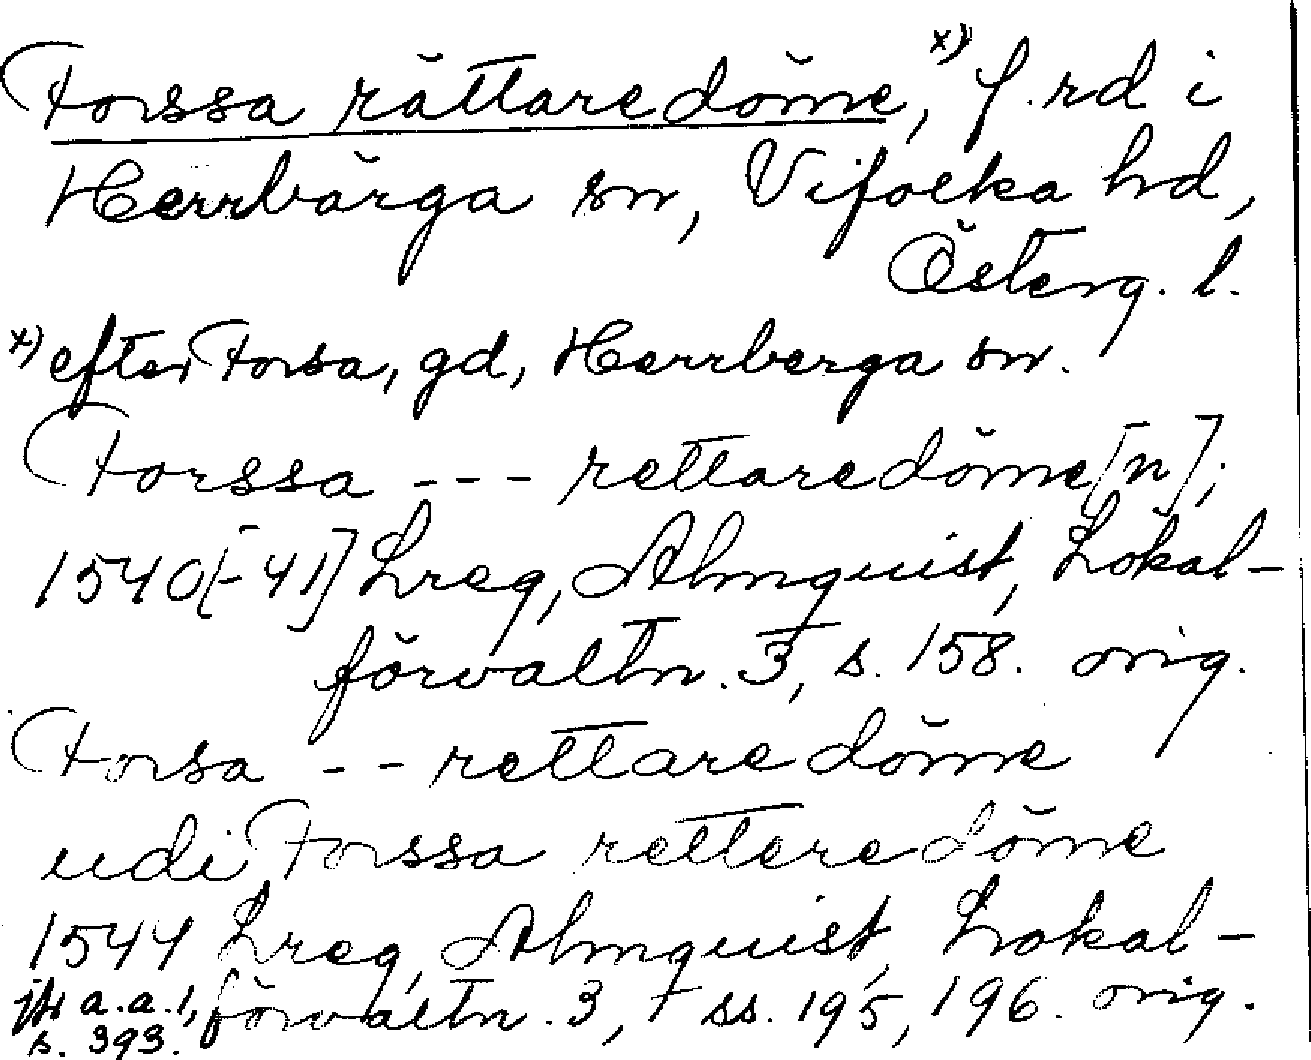 Forssa rättaredöme, x) f. rd i
Herrbärga sn, Vifolka hd,
Österg. l.
x) efter Forsa, gd, Herrberga sn.
Forssa --- rettaredöme[n];
1540[-41] Lreg, Almquist, Lokal-
förvaltn. 3, s. 158. orig.
Forsa -- rettaredöme
udi Forssa retteredöme
1544 Lreg, Almquist, Lokal-
förvaltn. 3, ss. 195, 196. orig.
jfr a.a. 1,
s. 393.